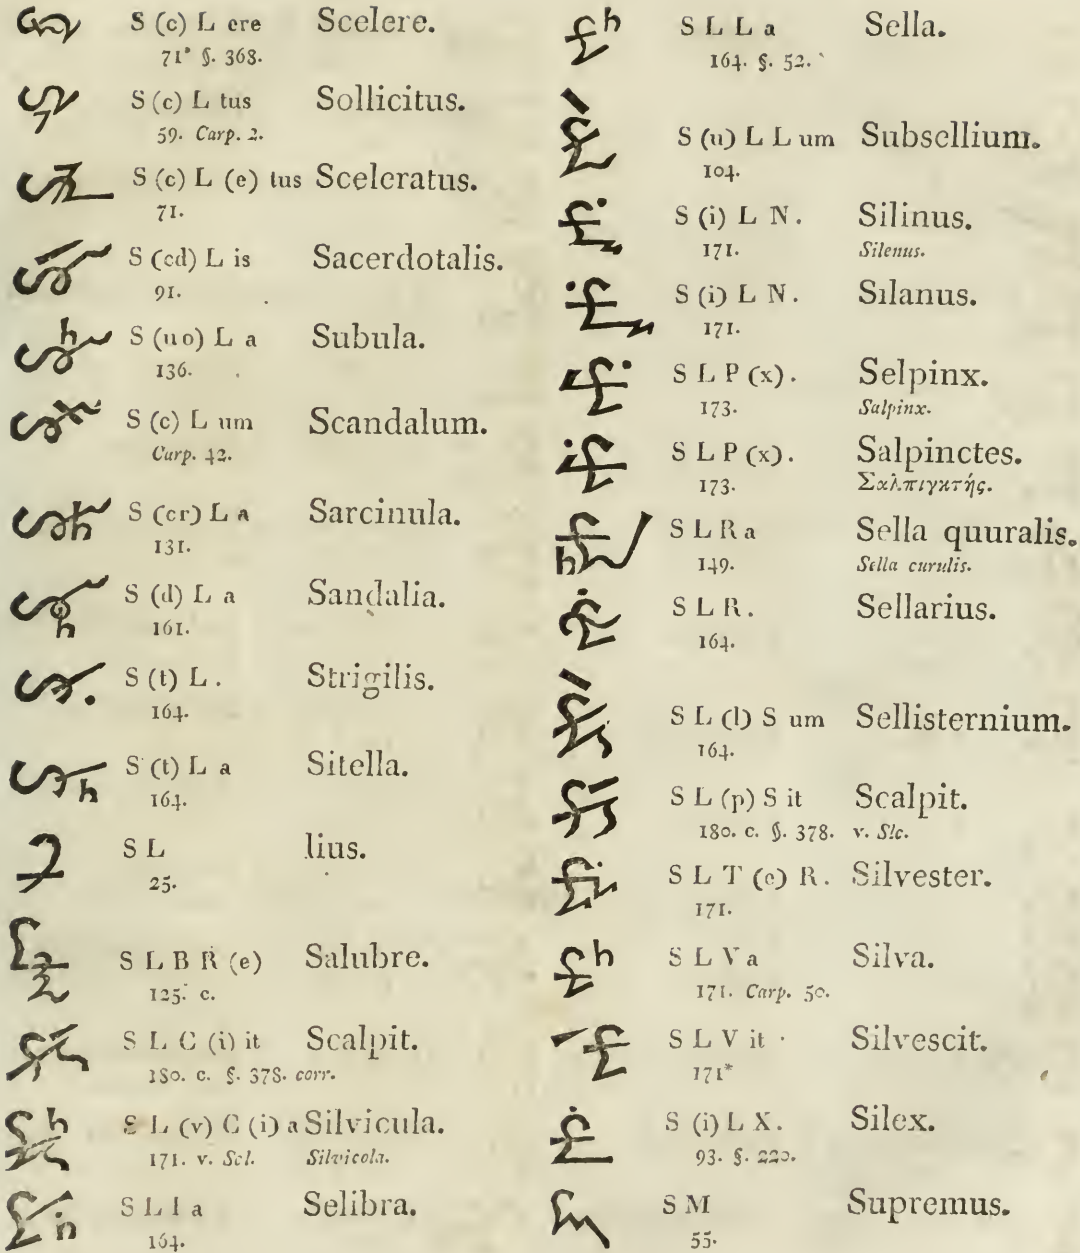 S (c) L ere Scelere.
71* §. 368.
S (c) L tus Sollicitus.
59. Carp. 2.
S (c) L (e) tus Sceleratus.
71.
S (cd) L is Sacerdotalis.
91.
S (uo) L a Subula.
136.
S (c) L um Scandalum.
Carp. 42.
S (cr) L a Sarcinula.
131.
S (d) L a Sandalia.
161.
S (t) L . Strigilis.
164.
S (t) L a Sitella.
164.
S L lius.
25.
S L B R (e) Salubre.
125. c.
S L C (i) it Scalpit.
180. c. §. 378. corr.
S L (v) C (i) a Silvicula.
171. v. Scl. Silvicola.
S L I a Selibra.
164.
S L L a Sella.
164. §. 52.
S (u) L L um Subsellium.
104.
S (i) L N . Silinus.
171. Silenus.
S (i) L N . Silanus.
171.
S L P (x) . Selpinx.
173. Salpinx.
S L P (x) . Salpinctes.
173. Σαλπιγκτής.
S L R a Sella quuralis.
149. Sella curulis.
S L R . Sellarius.
164.
S L (l) S um Sellisternium.
164.
S L (p) S it Scalpit.
180. c. §. 378. v. Slc.
S L T (e) R . Silvester.
171.
S L V a Silva.
171. Carp. 50.
S L V it Silvescit.
171*
S (i) L X . Silex.
93. §. 220.
S M Supremus.
55.